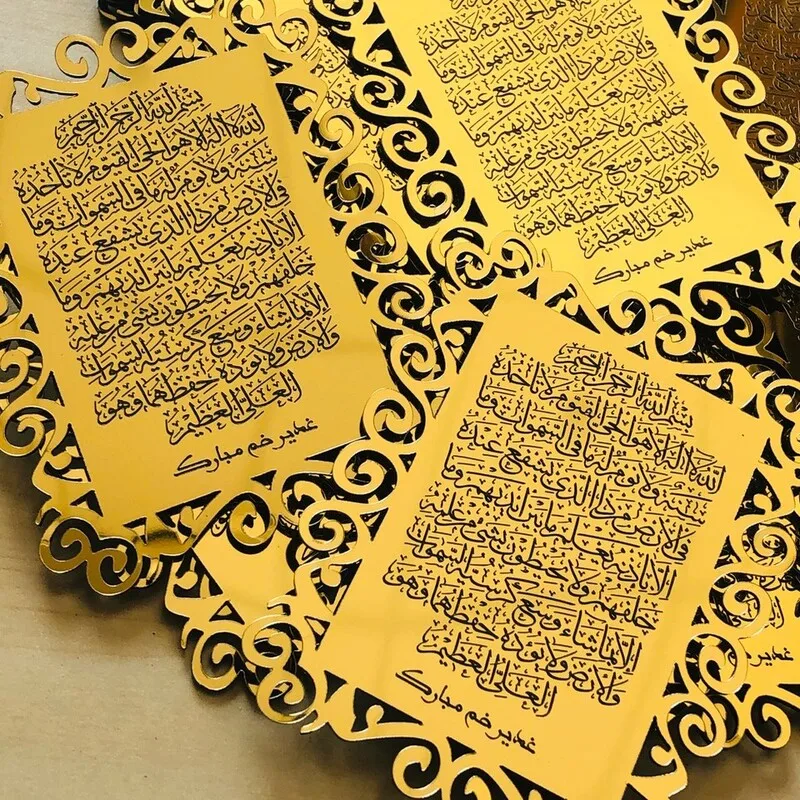 بسم الله الرحمن الرحيم
الله لا اله الا هو الحي القيوم لا تاخذه
سنة ولا نوم له ما في السموات وما
في الارض من ذا الذي يشفع عنده
الا باذنه يعلم ما بين ايديهم وما
خلفهم ولا يحيطون بشيء من علمه
الا بما شاء وسع كرسيه السموات
والارض ولا يوده حفظهما وهو
العلي العظيم
غدیر خم مبارک
لا تاخذه
سنة ولا نوم له ما في السموات وما
في الارض من ذا الذي يشفع عنده
الا باذنه يعلم ما بين ايديهم وما
خلفهم ولا يحيطون بشيء من علمه
الا بما شاء وسع كرسيه السموات
والارض ولا يوده حفظهما وهو
العلي العظيم
غدیر خم مبارک
بسم الله الرحمن الرحيم
الله لا اله الا هو الحي القيوم لا تاخذه
سنة ولا نوم له ما في السموات وما
في الارض من ذا الذي يشفع عنده
الا باذنه يعلم ما بين ايديهم وما
خلفهم ولا يحيطون بشيء من علمه
الا بما شاء وسع كرسيه السموات
والارض ولا يوده حفظهما وهو
العلي العظيم
غدیر خم مبارک
غدیر